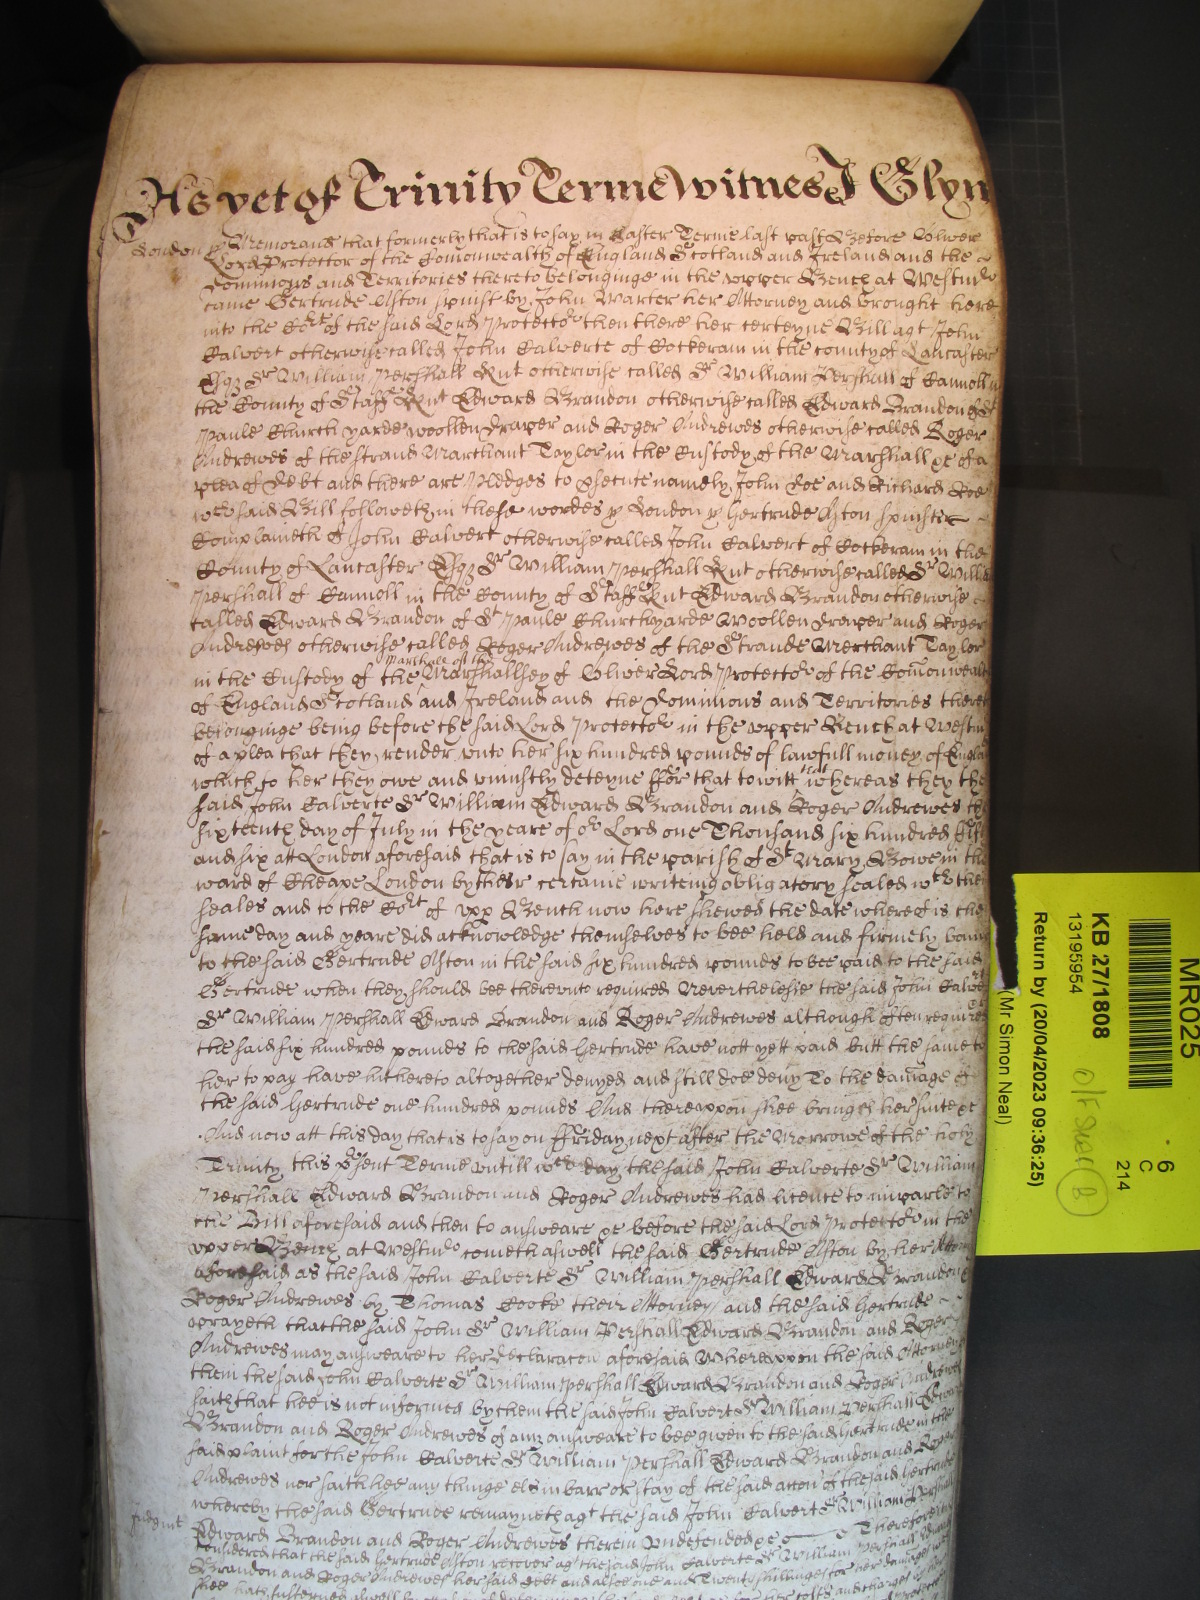 As yet of Trinity Terme Witnes J Glyn
London ss Memorand that formerly that is to say in Easter Terme last past Before Oliver
Lord Protector of the Comonwealth of England Scotland and Ireland and the
Dominions and Territories thereto belonginge in the upper Bench at Westmr
came Gertrude Aston spinster by John Warter her Attorney and brought here
into the Cort of the said Lord Protector then there her certeyne Bill agt John
Calvert otherwise called John Calverte of Cockeram in the county of Lancaster
Esqz Sr William Pershall Knt otherwise called Sr William Pershall of Cannoll in
the County of Staff Knt Edward Brandon otherwise called Edward Brandon of St
Paule Church yarde woollen draper and Roger Andrewes otherwise called Roger
Andrewes of the strand Marchant Taylor in the Custody of the Marshall &c of a
plea of debt and there are Pledges to psecute namely John Doe and Richard Roe
wch said Bill followeth in these wordes ss London ss Gertrude Aston spinster
Complaineth of John Calvert otherwise called John Calvert of Cockeram in the
County of Lancaster Esqz Sr William Pershall Knt otherwise called Sr Willia
Pershall of Cannoll in the County of Staff Knt Edward Brandon otherwise
called Edward Brandon of St Paule Churchyarde Woollen draper and Roger
Andrewes otherwise called Roger Andrewes of the Strande Merchant Taylor
in the Custody of the Marshall of the Marshallsey of Oliver Lord Protector of the Comonwealt
of England Scotland and Ireland and the Dominions and Territories theret
belonginge being before the said Lord Protector in the upper Bench at Westm
of a plea that they render unto her six hundred pounds of lawfull money of Englan
which to her they owe and uniustly deteyne ffor that towitt that whereas they the
said John Calverte Sr William Edward Brandon and Roger Andrewes the
sixteenth day of July in the yeare of or Lord one Thousand six hundred fift
and six att London aforesaid that is to say in the parish of St Mary Bowe in the
ward of Cheape London by their certaine writeing obligatory sealed wth their
seales and to the Cort of upp Bench now here shewed the date whereof is the
same day and yeare did acknowledge themselves to bee held and firmely boun
to the said Gertrude Aston in the said six hundred pounds to bee paid to the said
Gertrude when they should bee thereunto required Neverthelesse the said John Calve
Sr William Pershall Edward Brandon and Roger Andrewes although often required
the said six hundred pounds to the said Gertrude have nott yett paid butt the same to
her to pay have hithereto altogether denyed and still doe deny To the damage of
the said Gertrude one hundred pounds And thereuppon shee bringeth her suite &c
And now att this day that is to say on ffriday next after the Morrowe of the holy
Trinity this psent Terme untill wch day the said John Calverte Sr William
Pershall Edward Brandon and Roger Andrewes had licence to imparle to
the Bill aforesaid and then to answeare &c before the said Lord Protector in the
upper Bench at Westmr cometh aswell the said Gertrude Aston by her Attorn
aforesaid as the said John Calverte Sr William Pershall Edward Brandon
Roger Andrewes by Thomas Cooke their Attorney and the said Gertrude
prayeth that the said John Sr William Pershall Edward Brandon and Roger
Andrewes may answeare to her declaracon aforesaid Whereuppon the said Attorney
them the said John Calverte Sr William Pershall Edward Brandon and Roger Andrewes
saith that hee is not informed by them the said John Calvert Sr William Pershall Edwar
Brandon and Roger Andrewes of any answeare to bee given to the said Gertrude in the
said plaint for the John Calverte Sr William Pershall Edward Brandon and Roger
Andrewes nor saith hee any thinge els in barr or stay of the said accon of the said Gertrude
whereby the said Gertrude remayneth agt the said John Calvert Sr William Pershall
Judgmt Edward Brandon and Roger Andrewes therein undefended &c Therefore
considered that the said Gertrude Aston recover agt the said John Calverte Sr William Pershall Edward
Brandon and Roger Andrewes her said debt and alsoe one and Twenty shillings for her damages
shee hath susteyned
MR025
6
C
214
KB 27/1808
13195954
Return by (20/04/2023 09:36:25)
(Mr Simon Neal)